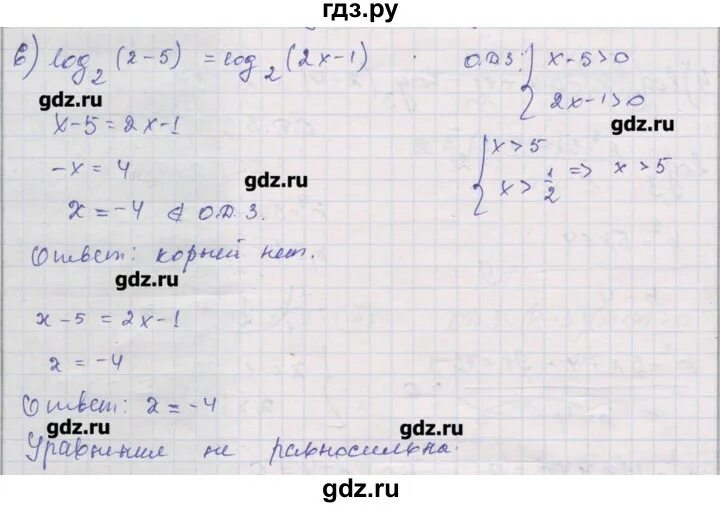 гдз.ру
в) log₂(x-5) = log₂(2x-1) О.Д.З. { x-5>0
2x-1>0
gdz.ru
gdz.ru
x-5=2x-1
{ x>5
-x=4
x>1/2 => x>5
gdz.ru
x=-4 ∉ О.Д.З.
Ответ: корней нет.
gdz.ru
x-5=2x-1
x=-4
Ответ: x=-4
gdz.ru
gdz.ru
Уравнения не равносильны.
gdz.ru